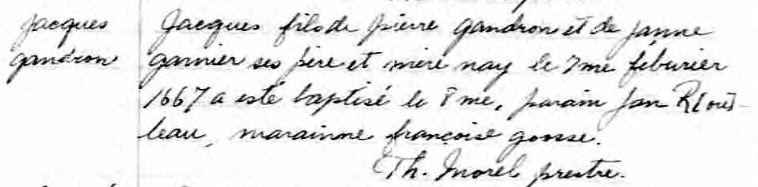 Jacques
gandron
Jacques fils de pierre gandron et de janne
garnier ses père et mère nay le 7me feburier
1667 a esté baptisé le 8me, parain Jan R[ous]-
leau, marainne françoise gousse.
Th. Morel prestre.